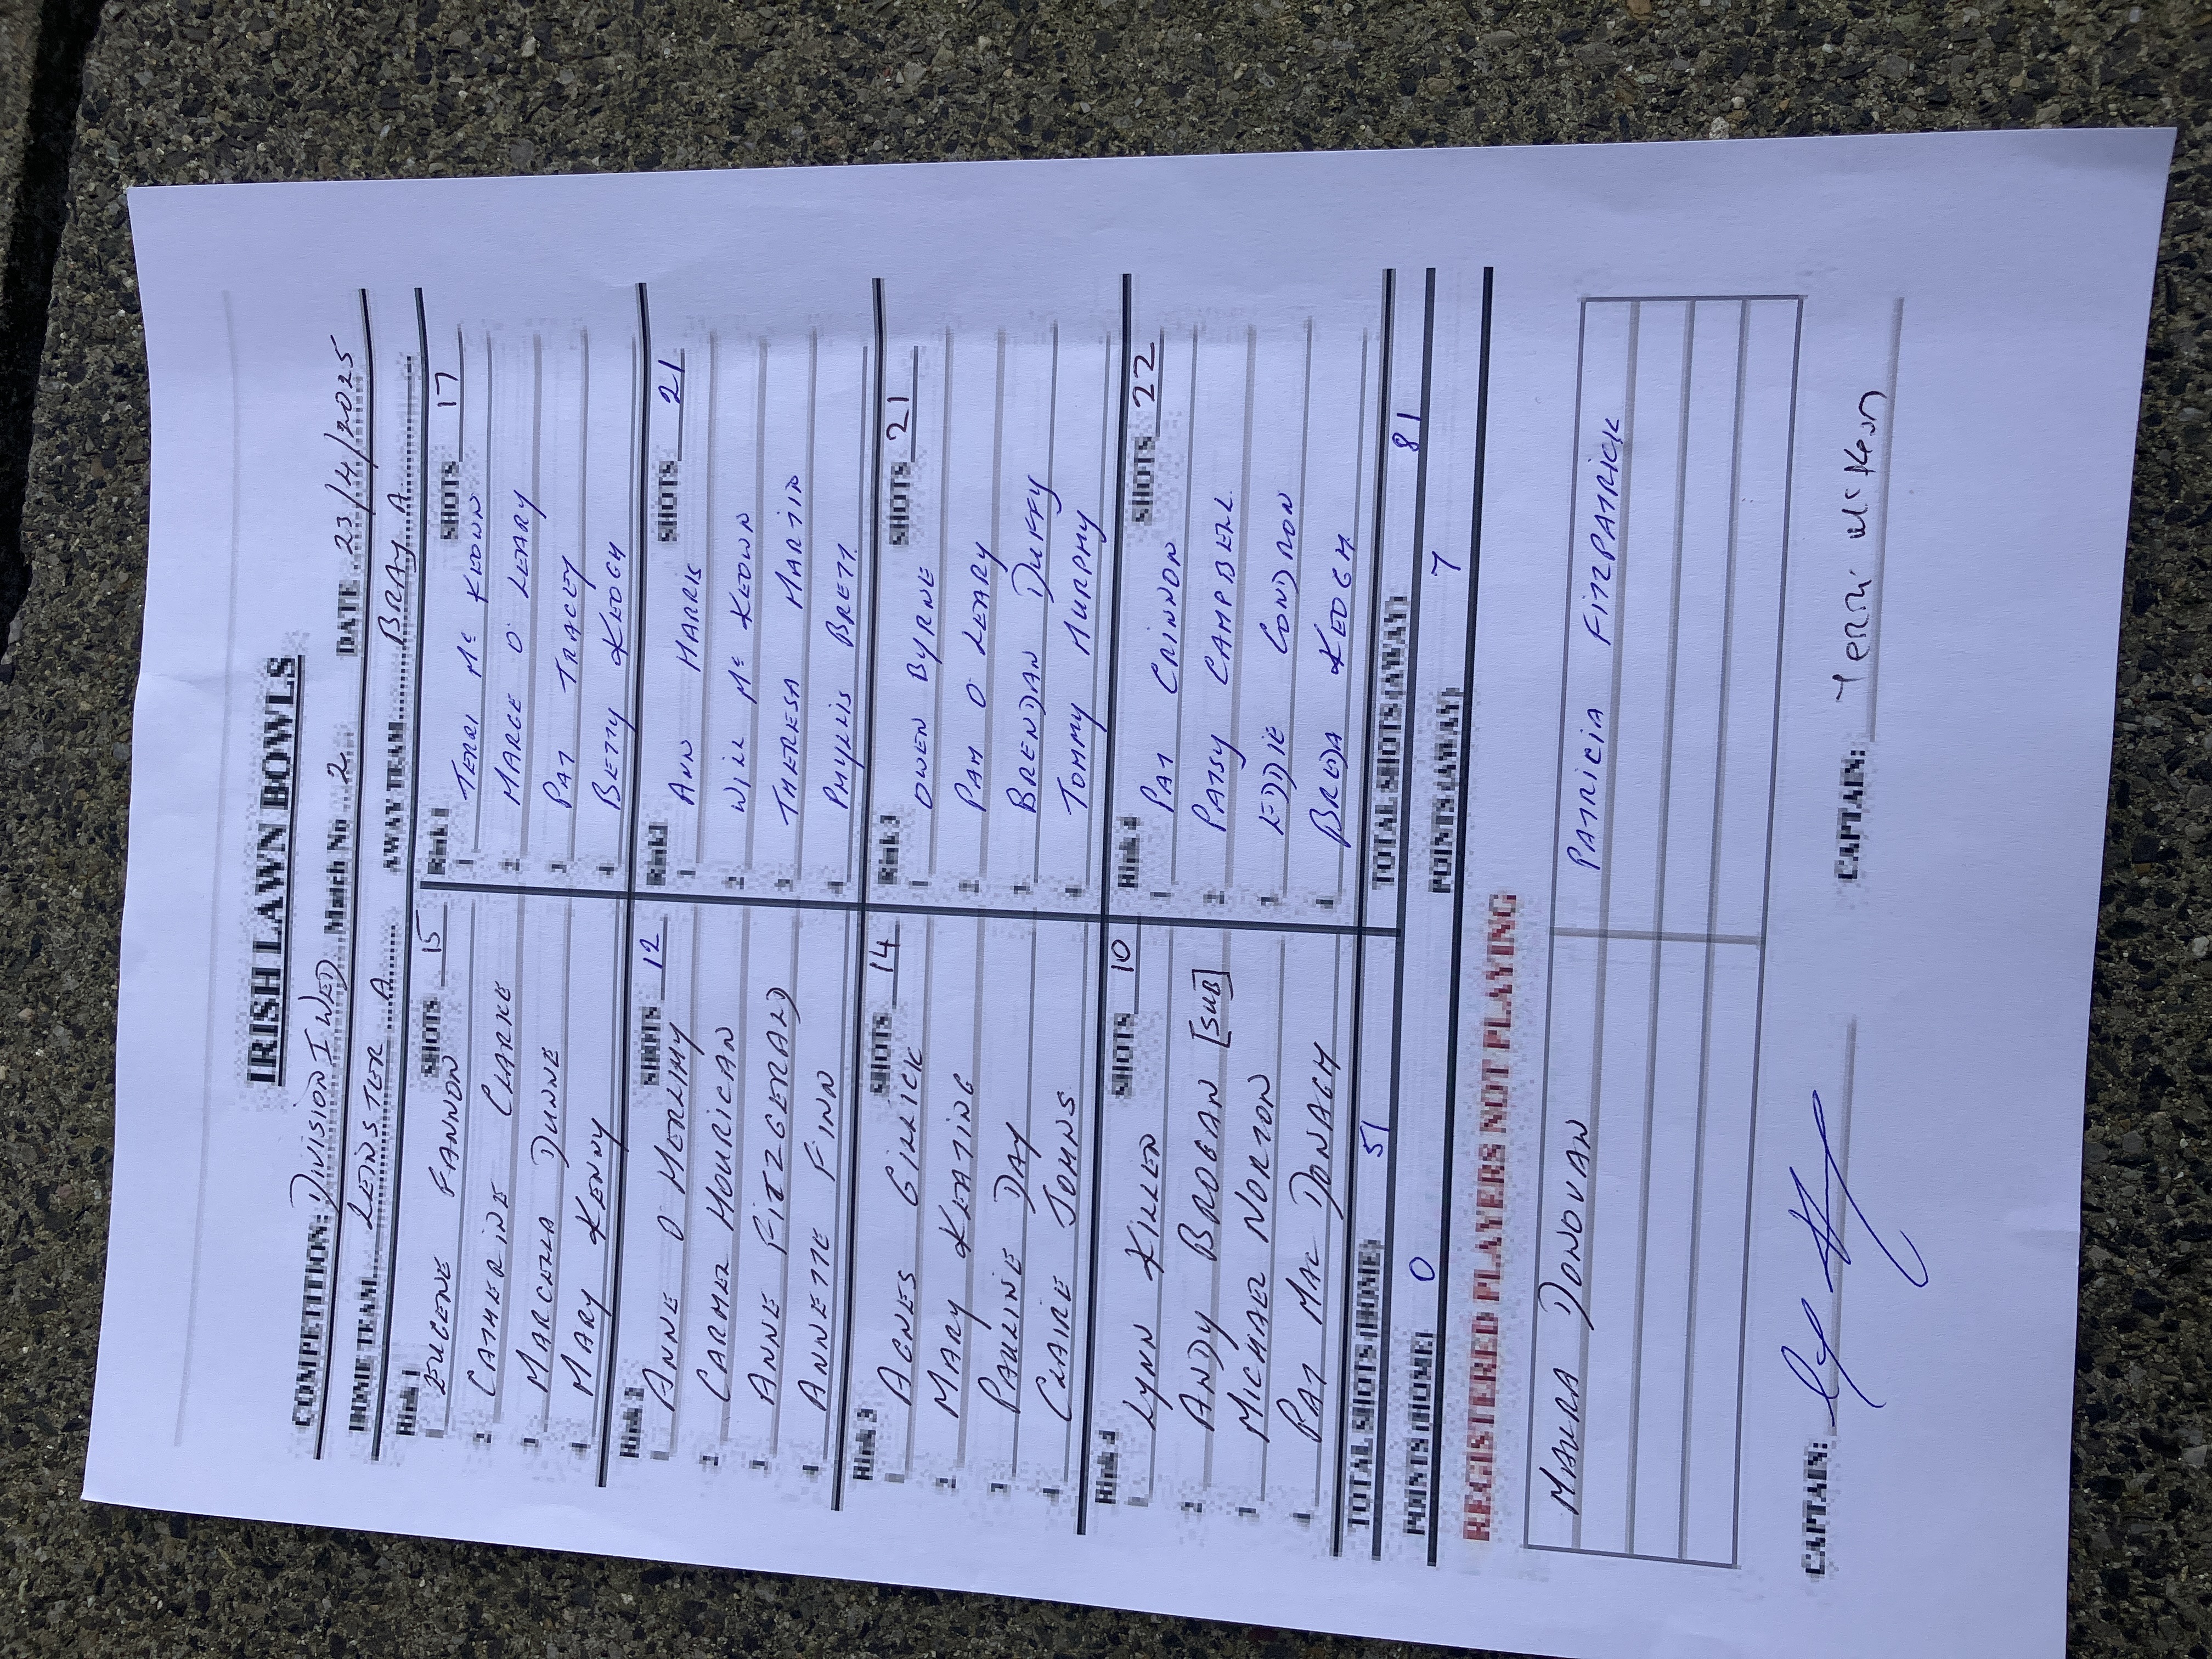 IRISH LAWN BOWLS
COMPETITION: DIVISION 1 WED Match No 2 DATE 23/4/2025
HOME TEAM LEINSTER A AWAY TEAM BRAY A
Rink 1 SHOTS 15 Rink 1 SHOTS 17
1 EUGENE FANNON 1 TERRI Mc KEOWN
2 CATHERINE CLARKE 2 MARGE O' LEARY
3 MARCELLA DUNNE 3 PAT TRACEY
4 MARY KENNY 4 BETTY KEOGH
Rink 2 SHOTS 12 Rink 2 SHOTS 21
1 ANNE O MERLIHY 1 ANN HARRIS
2 CARMEL HOURICAN 2 WILL Mc KEOWN
3 ANNE FITZGERALD 3 THERESA MARTIN
4 ANNETTE FINN 4 PHYLLIS BRETT
Rink 3 SHOTS 14 Rink 3 SHOTS 21
1 AGNES GILLICK 1 OWEN BYRNE
2 MARY KEATING 2 PAM O' LEARY
3 PAULINE DAY 3 BRENDAN DUFFY
4 CLAIRE JOHNS 4 TOMMY MURPHY
Rink 4 SHOTS 10 Rink 4 SHOTS 22
1 LYNN KILLEN 1 PAT CRINNON
2 ANDY BROGAN [SUB] 2 PATSY CAMPBELL
3 MICHAEL NORTON 3 EDDIE CONDRON
4 PAT MAC DONAGH 4 BREDA KEOGH
TOTAL SHOTS (HOME) 51 TOTAL SHOTS (AWAY) 81
POINTS (HOME) 0 POINTS (AWAY) 7
REGISTERED PLAYERS NOT PLAYING
MAURA DONOVAN PATRICIA FITZPATRICK
CAPTAIN: CAPTAIN: Terri McKeown